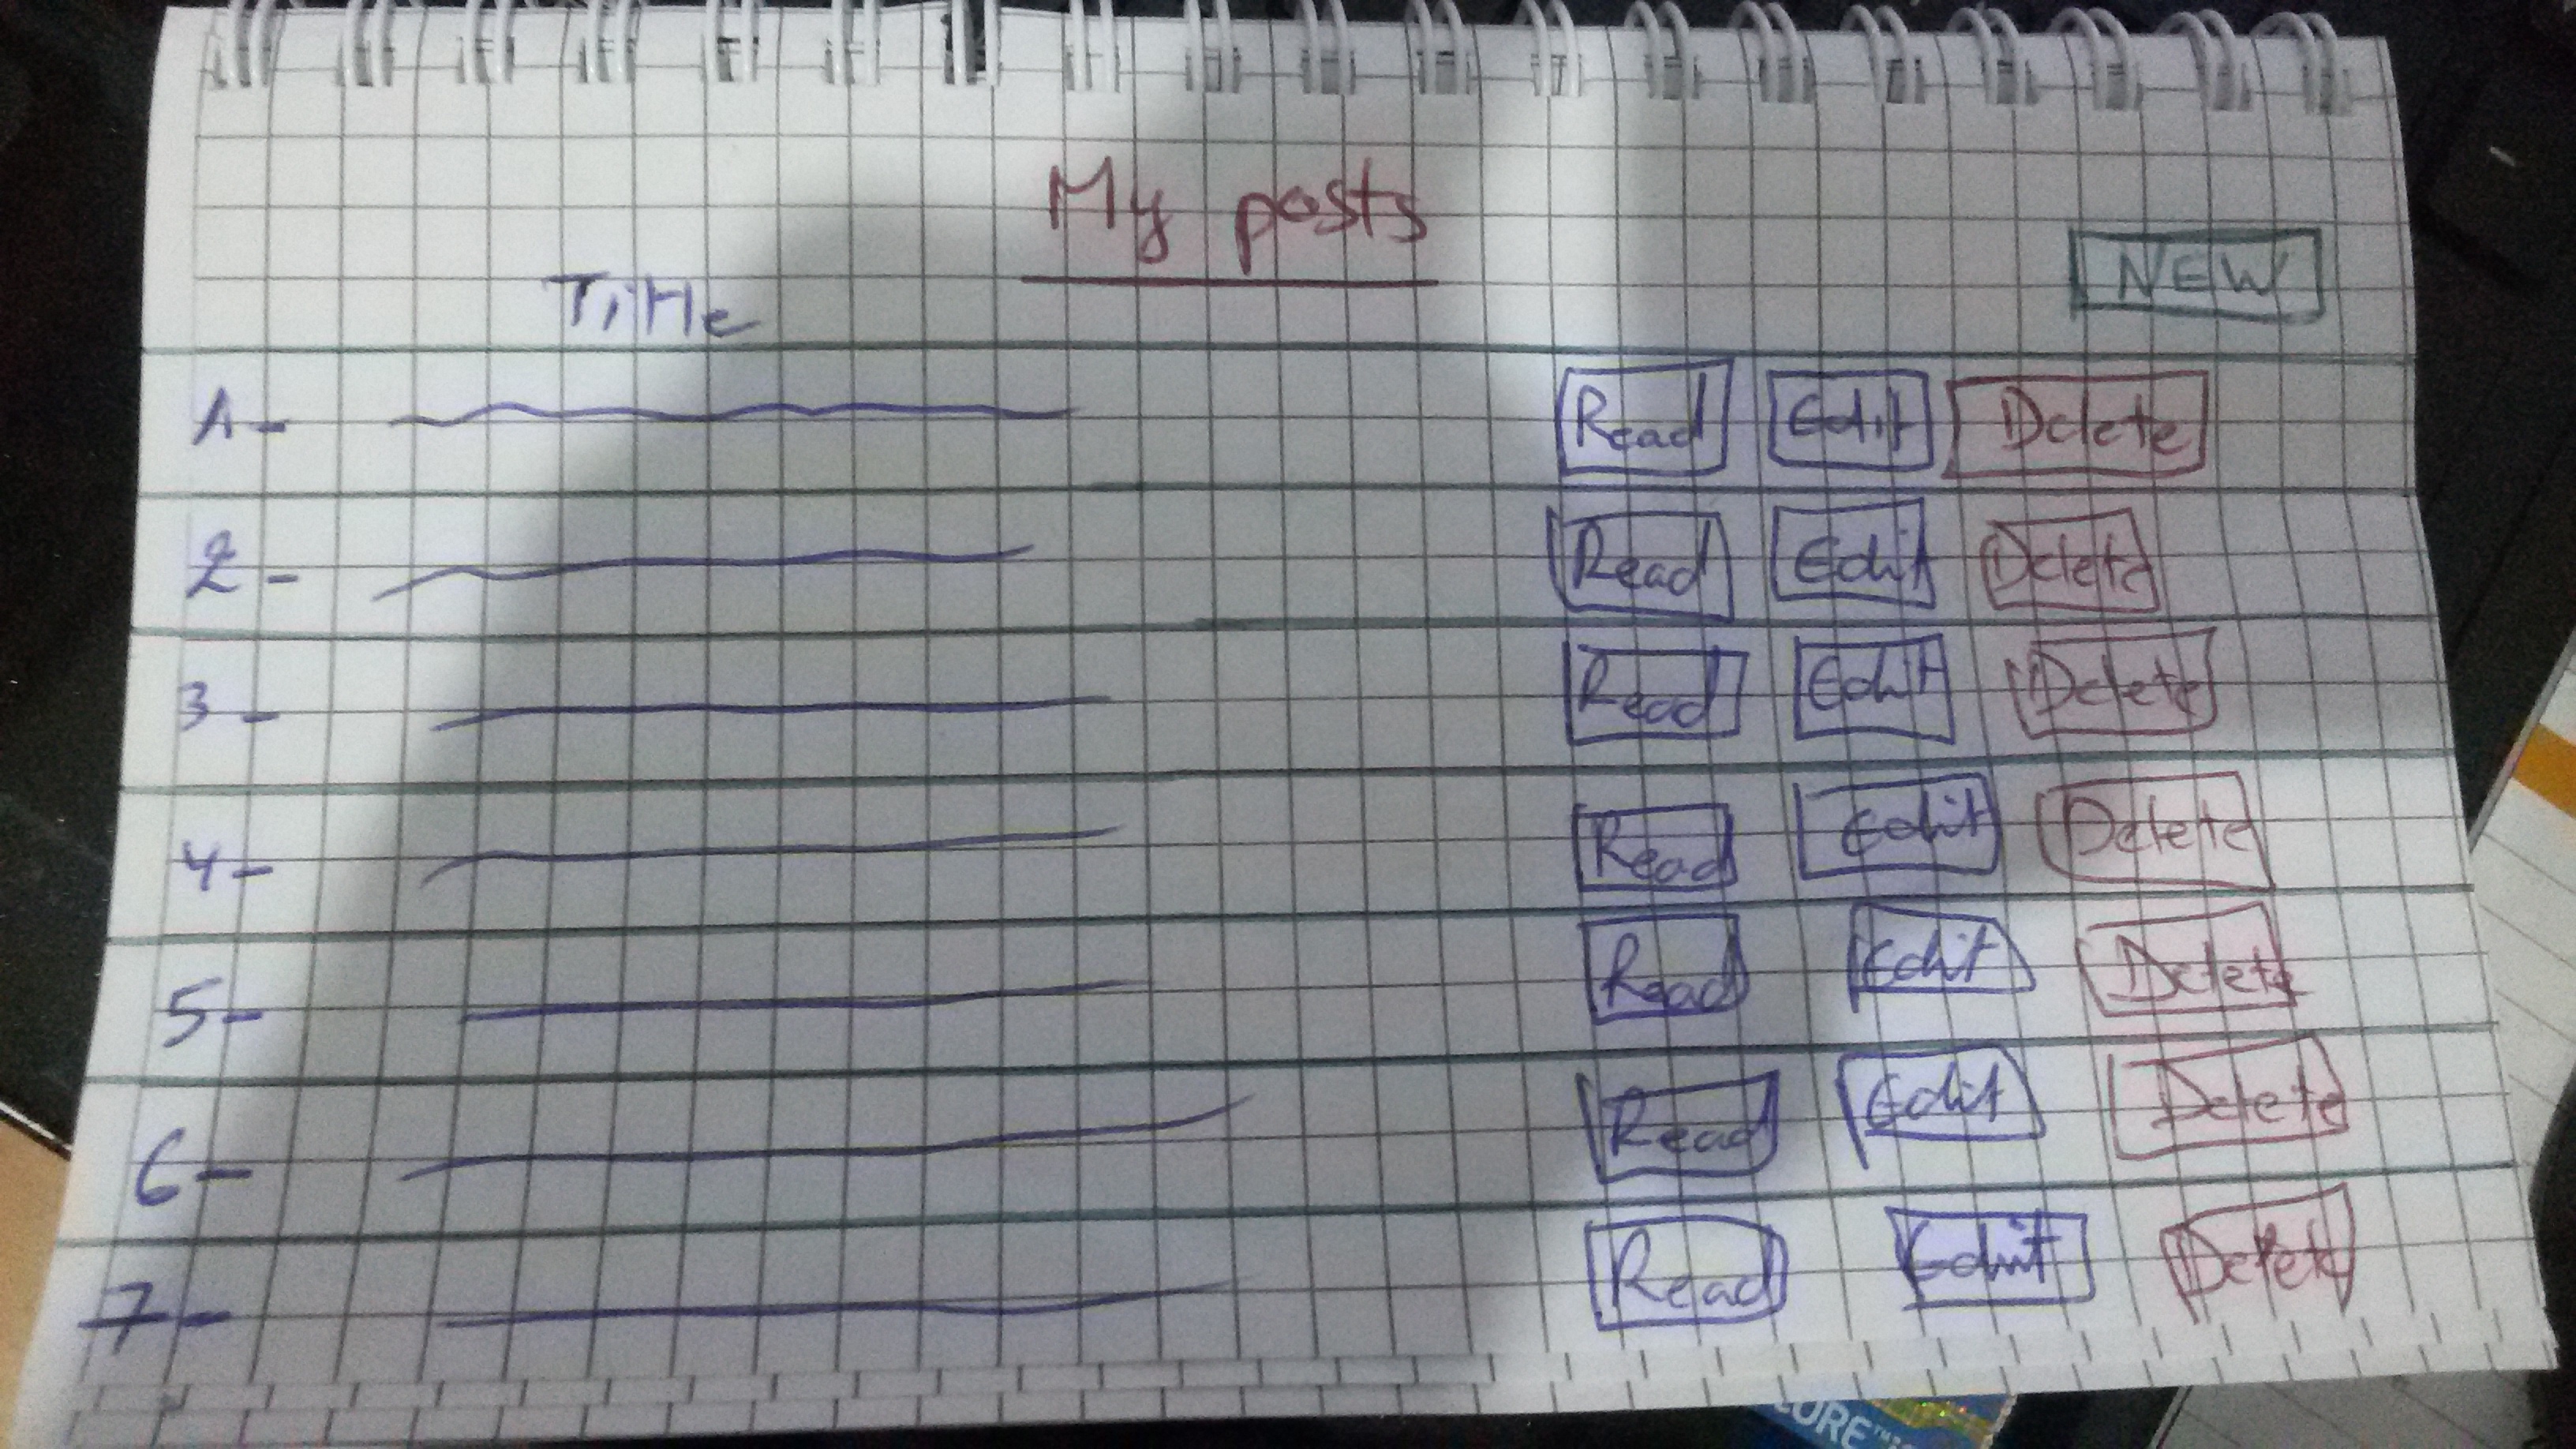 My posts
NEW
Title
1- Read Edit Delete
2- Read Edit Delete
3- Read Edit Delete
4- Read Edit Delete
5- Read Edit Delete
6- Read Edit Delete
7- Read Edit Delete
CORE™